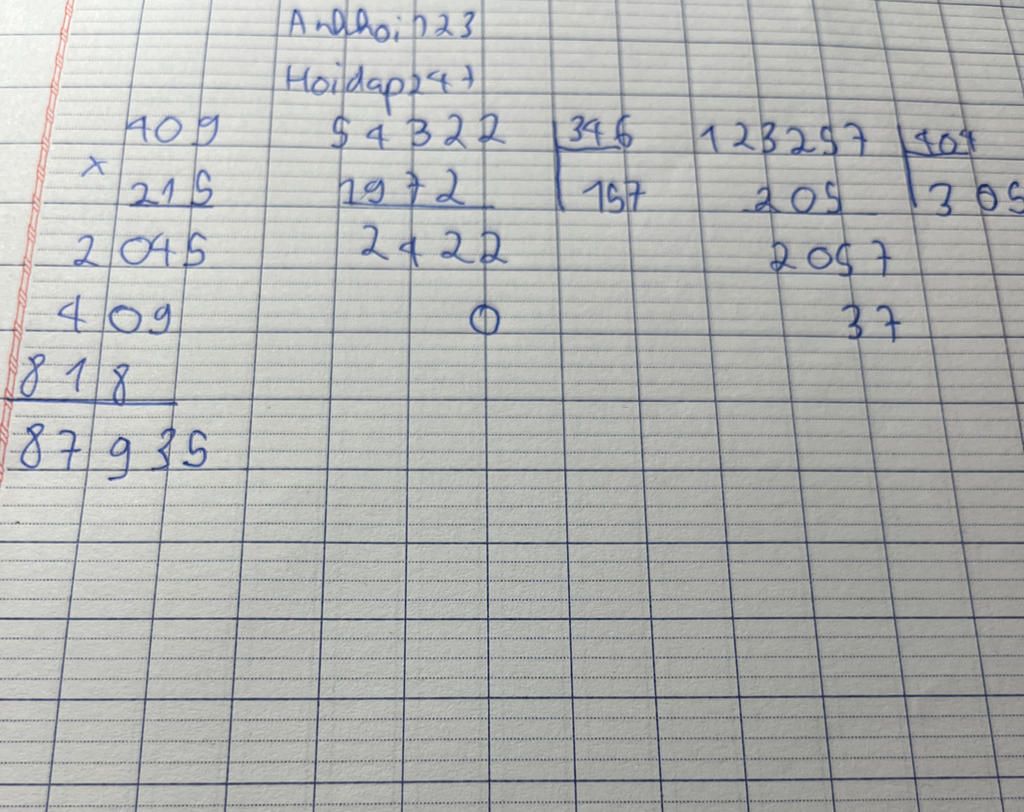 Andhoin23
Hoidap247
409 54322 346 123257 404
x
215 1972 157 205 305
2045 2422 2057
409 0 37
818
87935